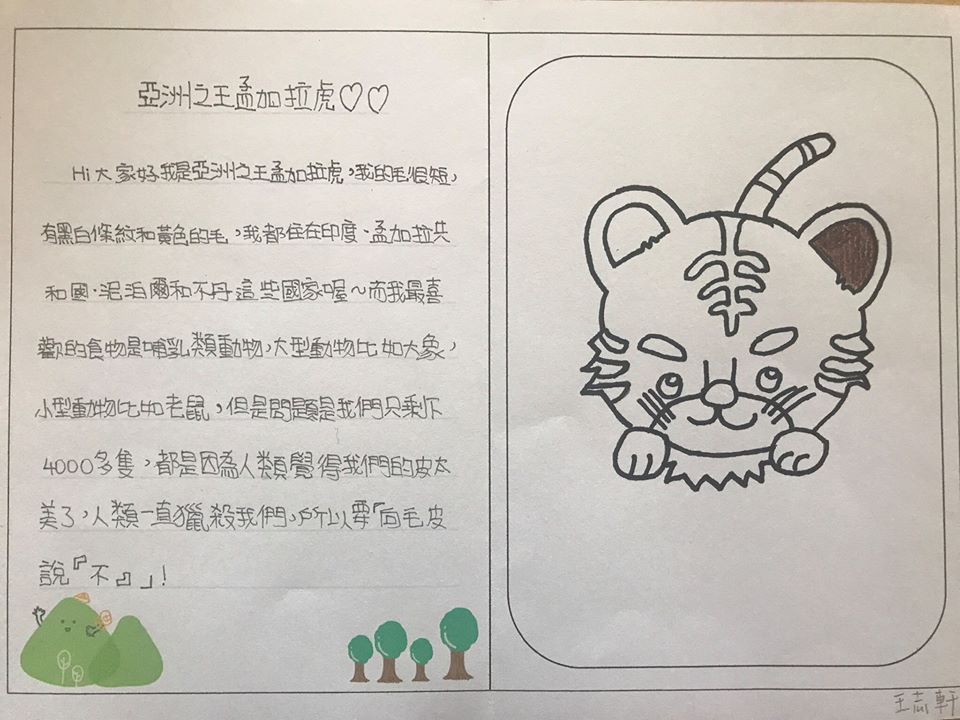 亞洲之王孟加拉虎♡♡
Hi大家好我是亞洲之王孟加拉虎，我的毛很短，
有黑白條紋和黃色的毛，我都住在印度、孟加拉共
和國、泥泊爾和不丹這些國家喔～而我最喜
歡的食物是哺乳類動物，大型動物比如大象，
小型動物比如老鼠，但是問題是我們只剩下
4000多隻，都是因為人類覺得我們的皮太
美了，人類一直獵殺我們，所以要「向毛皮
說『不』」！
王志軒